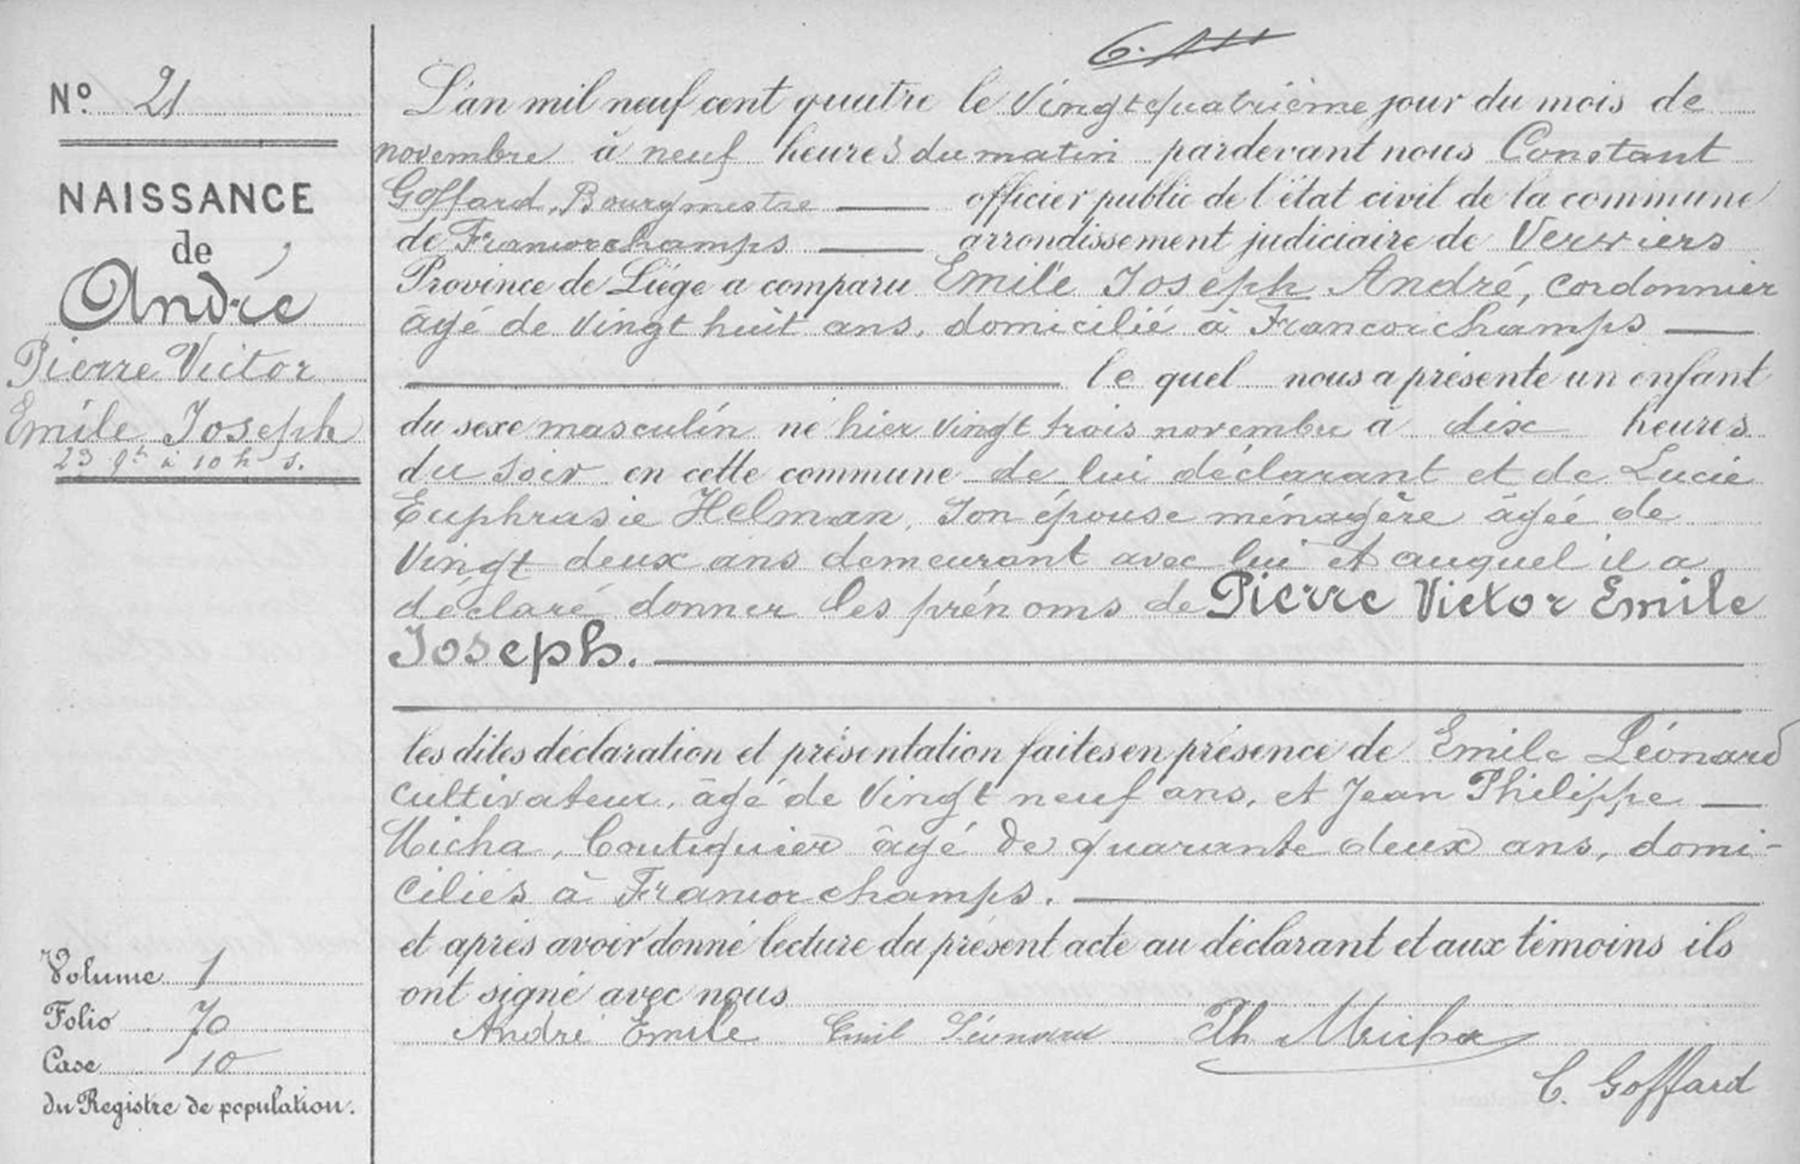 Nº 21
NAISSANCE
de
André
Pierre Victor
Emile Joseph
23 9bre à 10 h s.
Volume 1
Folio 70
Case 10
du Registre de population.
L'an mil neuf cent quatre le vingt quatrième jour du mois de
novembre à neuf heures du matin pardevant nous Constant
Goffard, Bourgmestre officier public de l'état civil de la commune
de Francorchamps arrondissement judiciaire de Verviers
Province de Liége a comparu Emile Joseph André, cordonnier
âgé de vingt huit ans, domicilié à Francorchamps
le quel nous a présenté un enfant
du sexe masculin né hier vingt trois novembre à dix heures
du soir en cette commune de lui déclarant et de Lucie
Euphrasie Helman, son épouse ménagère âgée de
vingt deux ans demeurant avec lui et auquel il a
déclaré donner les prénoms de Pierre Victor Emile
Joseph.
les dites déclaration et présentation faites en présence de Emile Léonard
cultivateur, âgé de vingt neuf ans, et Jean Philippe
Micha, boutiquier âgé de quarante deux ans, domi-
ciliés à Francorchamps.
et après avoir donné lecture du présent acte au déclarant et aux témoins ils
ont signé avec nous
André Emile Emil Léonard Ph Micha
C. Goffard